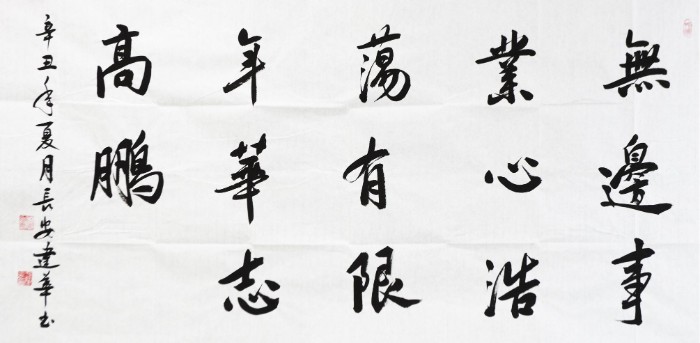 無邊事
業心浩
蕩有限
年華志
高鵬
辛丑年夏月長安建華书